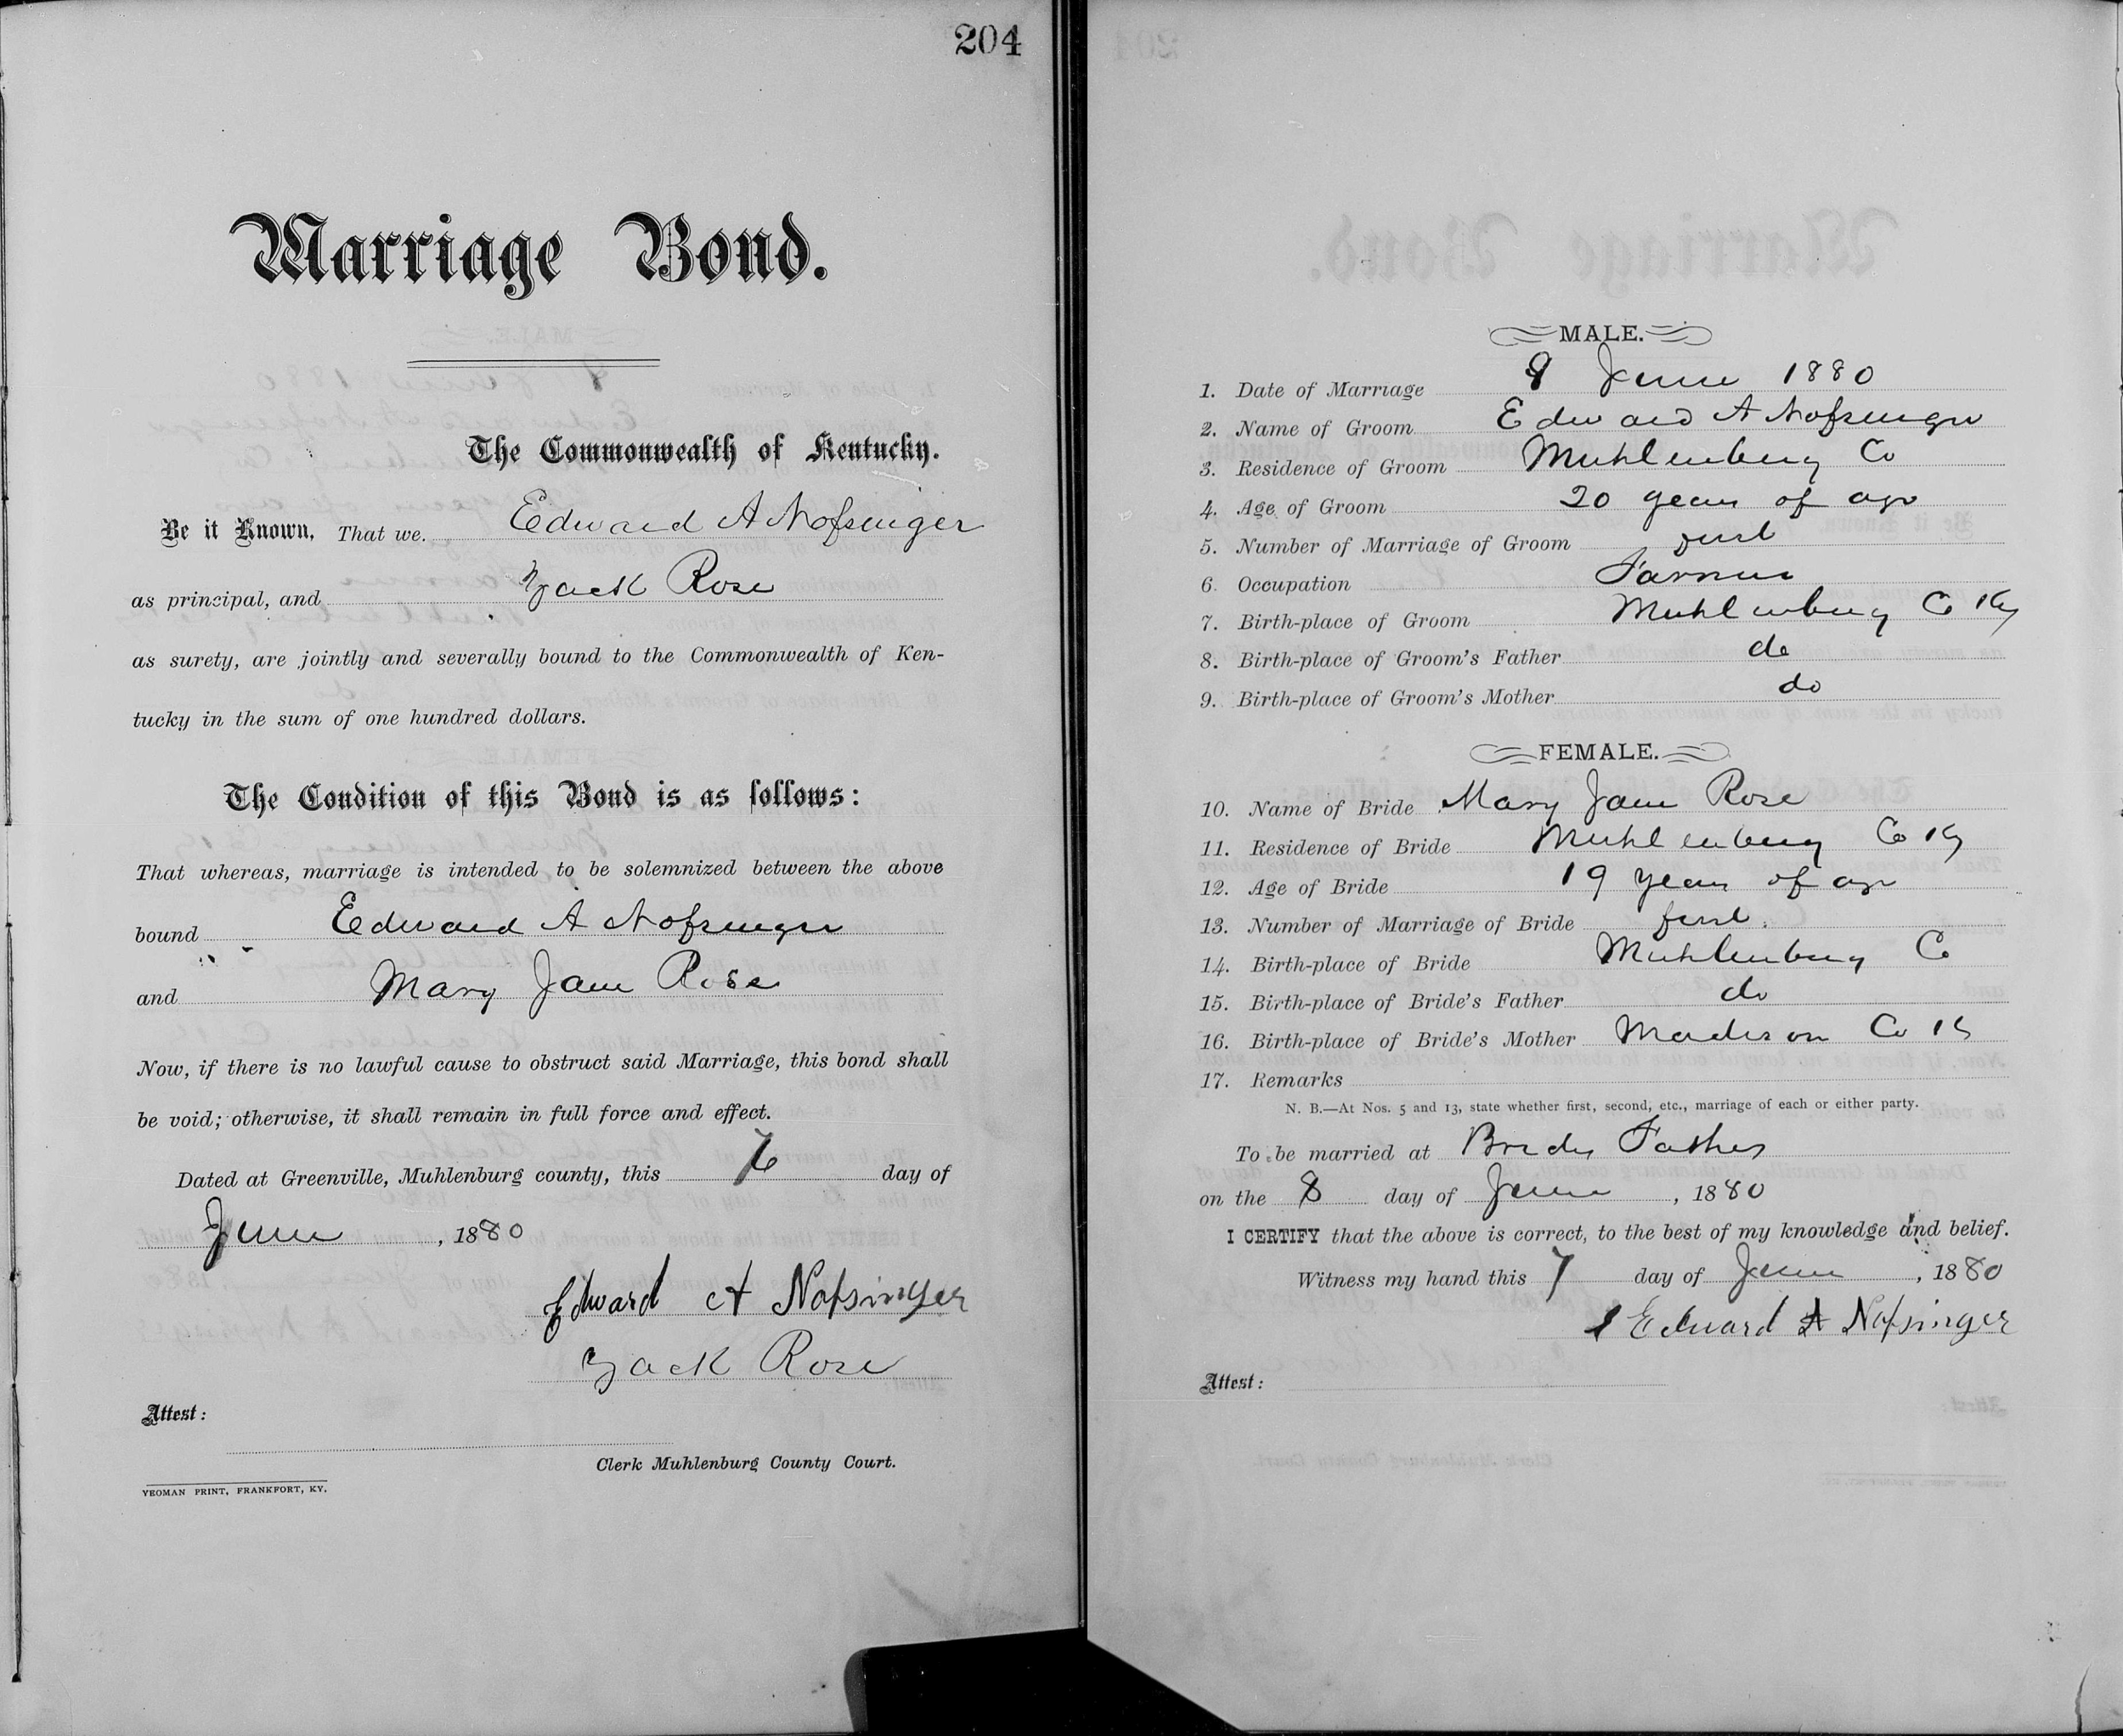 204
Marriage Bond.
The Commonwealth of Kentucky.
Be it Known, That we. Edward A Nofsinger
as principal, and Zack Rose
as surety, are jointly and severally bound to the Commonwealth of Ken-
tucky in the sum of one hundred dollars.
The Condition of this Bond is as follows:
That whereas, marriage is intended to be solemnized between the above
bound Edward A Nofsinger
and Mary Jane Rose
Now, if there is no lawful cause to obstruct said Marriage, this bond shall
be void; otherwise, it shall remain in full force and effect.
Dated at Greenville, Muhlenburg county, this day of
June, 1880
Edward A Nofsinger
Zack Rose
Attest:
Clerk Muhlenburg County Court.
YEOMAN PRINT, FRANKFORT, KY.
MALE.
1. Date of Marriage 8 June 1880
2. Name of Groom Edward A Nofsinger
3. Residence of Groom Muhlenburg Co
4. Age of Groom 20 years of age
5. Number of Marriage of Groom first
6. Occupation Farmer
7. Birth-place of Groom Muhlenburg Co Ky
8. Birth-place of Groom's Father do
9. Birth-place of Groom's Mother do
FEMALE.
10. Name of Bride Mary Jane Rose
11. Residence of Bride Muhlenburg Co Ky
12. Age of Bride 19 years of age
13. Number of Marriage of Bride first
14. Birth-place of Bride Muhlenburg Co
15. Birth-place of Bride's Father do
16. Birth-place of Bride's Mother Madison Co K
17. Remarks
N. B.—At Nos. 5 and 13, state whether first, second, etc., marriage of each or either party.
To be married at Brides Fathers
on the 8 day of June, 1880
I CERTIFY that the above is correct, to the best of my knowledge and belief.
Witness my hand this 7 day of June, 1880
Edward A Nofsinger
Attest: